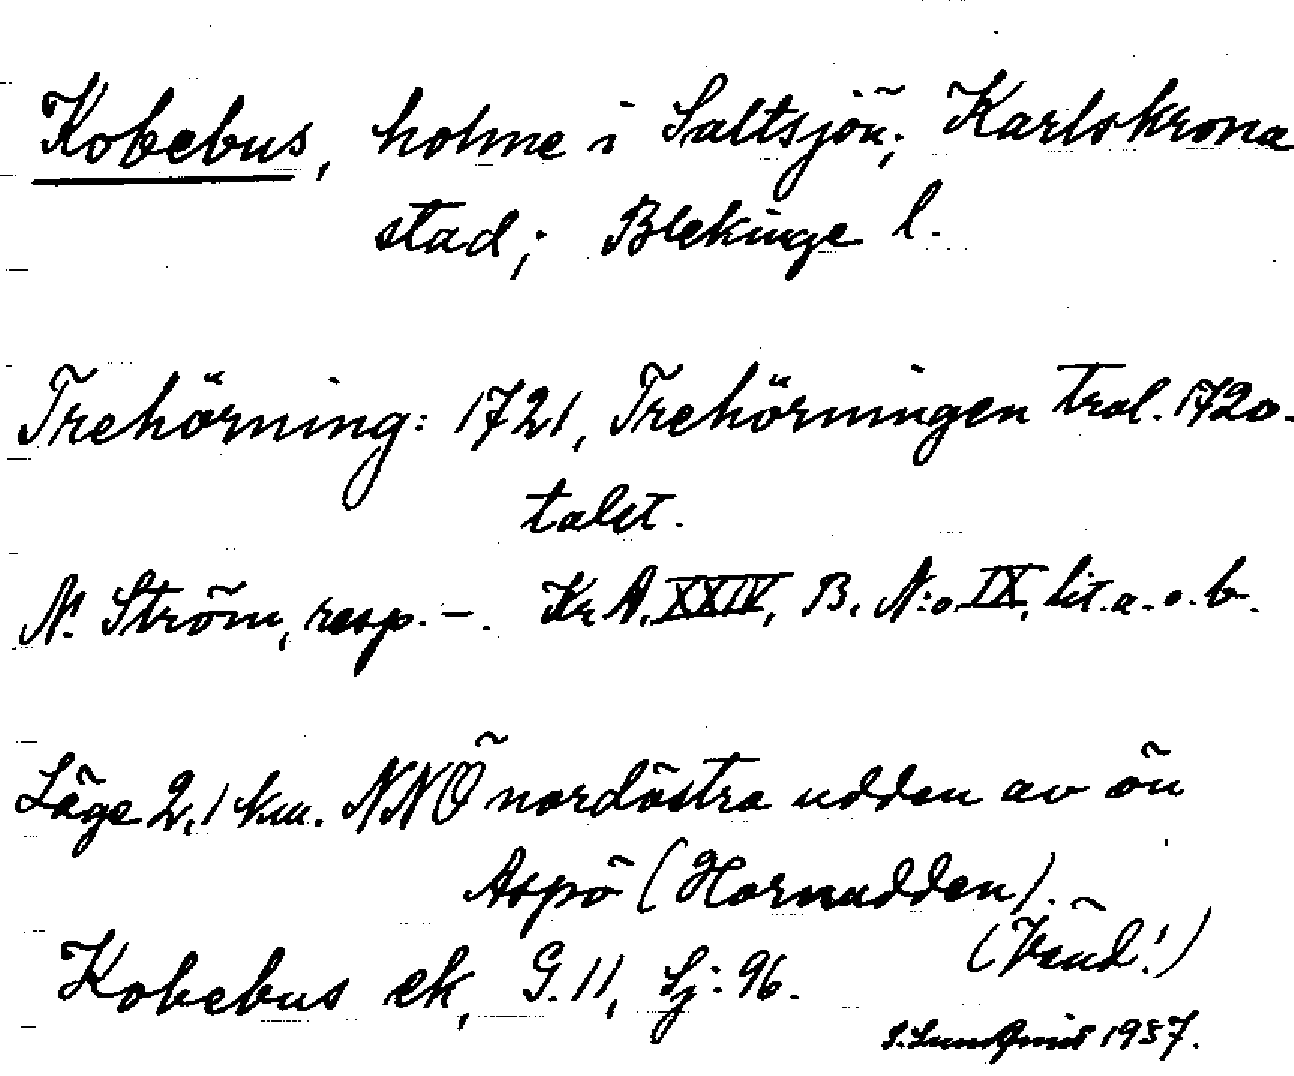 Kobebus, holme i Saltsjön; Karlskrona
stad; Blekinge l.
Trehörning: 1721, Trehörningen trol. 1720-
talet.
N. Ström, resp. –. Kr.A. XXIV, B. N:o IX, lit. a. o. b.
Läge 2,1 km. NNÖ nordöstra udden av ön
Aspö (Hornudden).
(Vänd!)
Kobebus ek, G. 11, Sj: 96.
S. Lundqvist 1937.